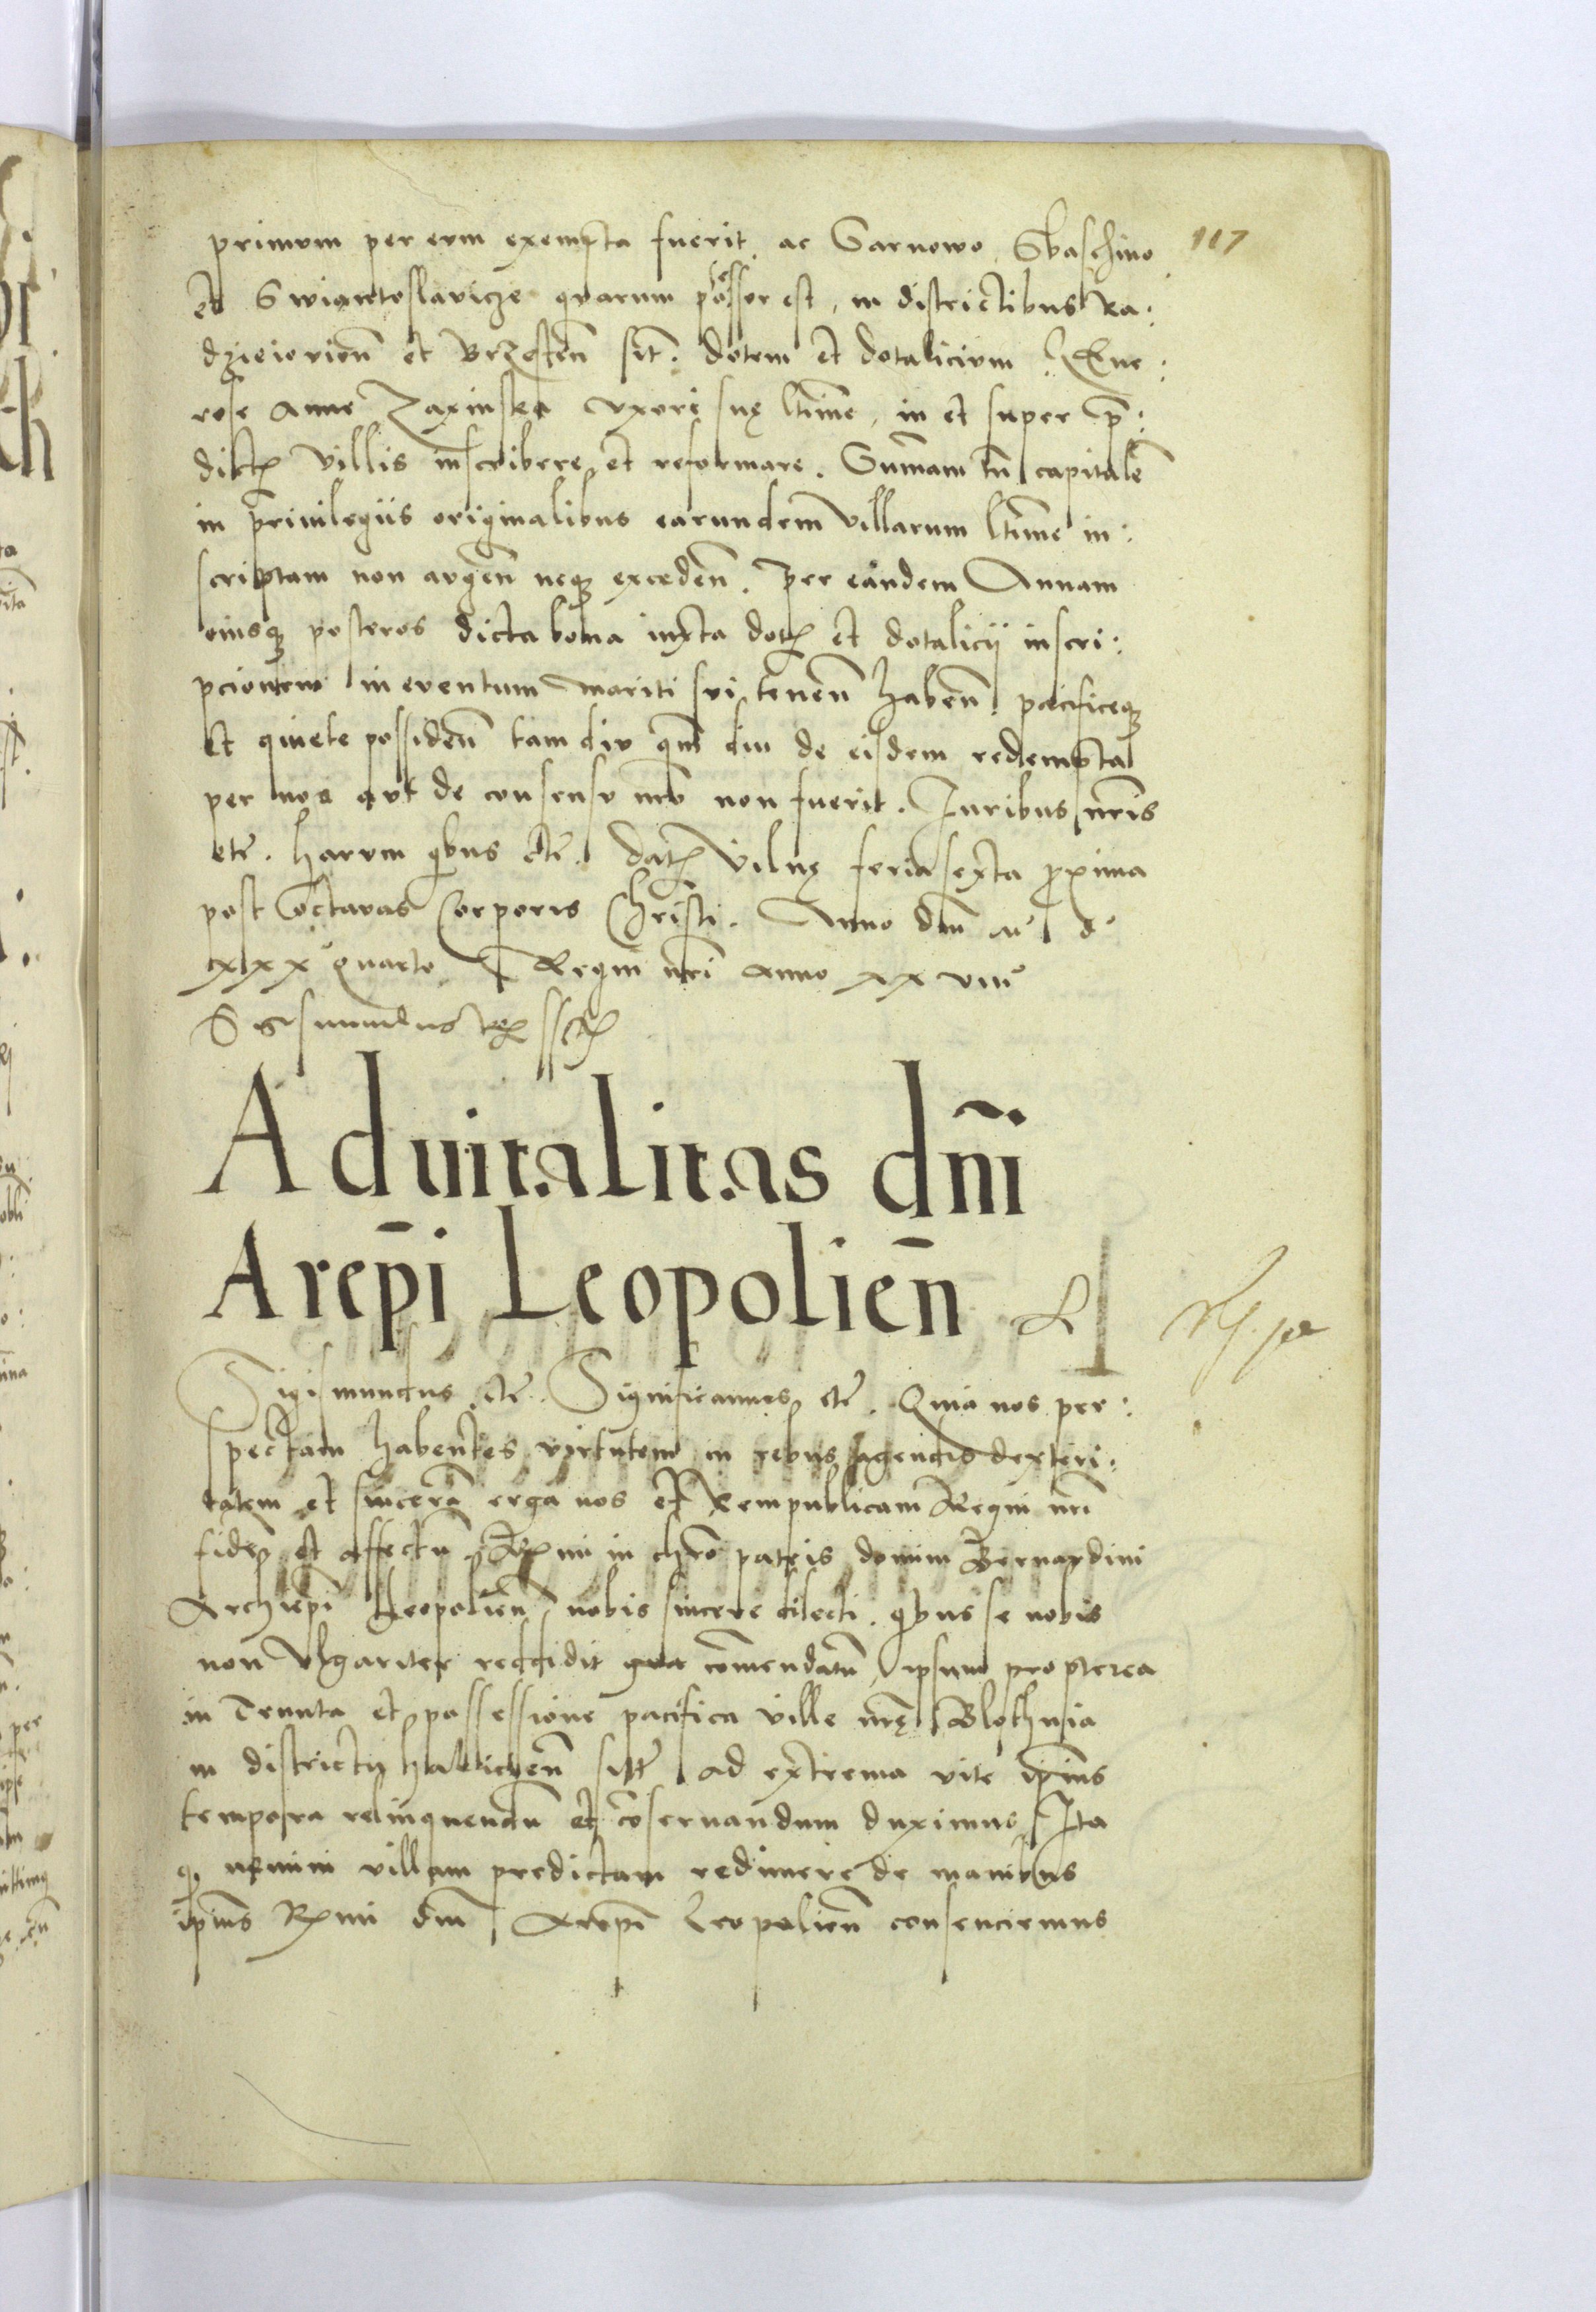 117
primum per eum exempta fuerit ac Sarnowo Sbaschino
et Swiantoslavicze quarum possessor est, in districtibus Ra:
dzieiovien̄ et Brzesten̄ sit̄. dotem et dotalicium Gene:
rose Anne Zaxinska uxori suę l̄time, in et super p̄:
dictis villis inscribere et reformare. Sum̄am tn̄ capitalē
in privilegiis originalibus earundem villarum l̄time in:
scriptam non augen̄ neqȝ exceden̄. per eandem Annam
eiusqȝ posteros dicta bona iuxta dotis et dotalicii inscri:
pcionem in eventum mariti sui tenen̄ haben̄ pacificeqȝ
et quiete possiden̄ tamdiu qm̄ diu de eisdem redempta
per nos aut de consensu nr̄o non fuerit. Iuribus nr̄is
etc̄. harum qbus etc̄. Datȝ Vilnę feria sexta proxima
post octavas Corporis Christi. Anno dn̄i M° d°
xxx quarto Regni nr̄i anno xxviii°
Sigismundus Rex sst
Advitalitas dn̄i
Arep̄i Leopolien̄
Sigismundus etc̄. Significamus etc̄. Quia nos per:
spectam habentes virtutem in rebus agendis dexteri:
tatem et sincerā erga nos et Rempublicam Regni nr̄i
fidē et affectū Rx̄mi in chro patris domini Bernardini
Archiep̄i Leopolien̄ nobis sincere dilecti. qbus se nobis
non vlgariter reddidit comendatū, ipsum propterea
in Tenuta et possessione pacifica ville nr̄ę Blothnia
in districtu halicien̄ sitę ad extrema vite ipius
tempora relinquendū et cōservandum duximus. Ita
qȝ nemini villam predictam redimere de manibus
ipius Rx̄mi dn̄i Arep̄i Leopolien̄ consenciemus